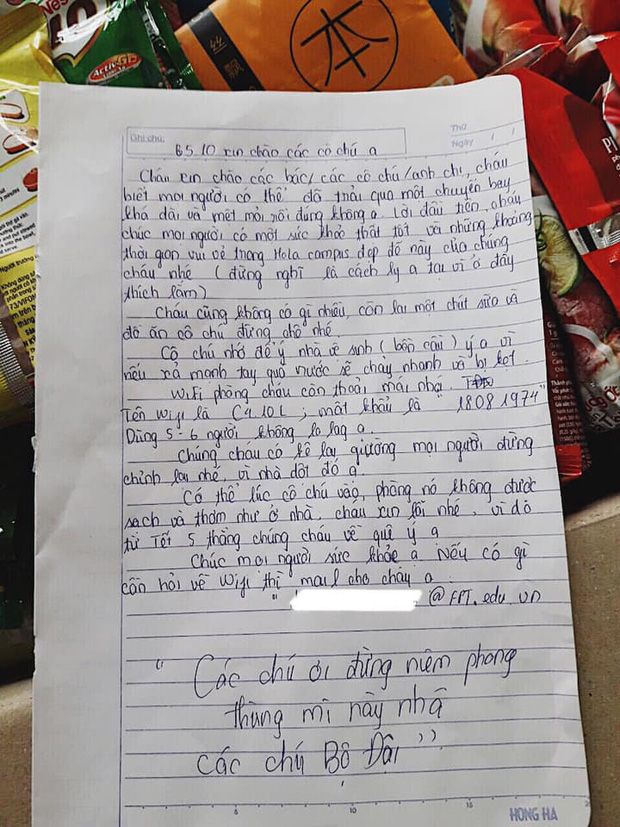 ActivGE
本
Ghi chú:
Thứ
Ngày / /
B5.10 xin chào các cô chú ạ
Cháu xin chào các bác/ các cô chú/anh chị, cháu
biết mọi người có thể đã trải qua một chuyến bay
khá dài và mệt mỏi rồi đúng không ạ. Lời đầu tiên, cháu
chúc mọi người có một sức khỏe thật tốt và những khoảng
thời gian vui vẻ trong Hola campus đẹp đẽ này của chúng
cháu nhé (đừng nghĩ là cách ly ạ tại vì ở đây
thích lắm)
Cháu cũng không có gì nhiều, còn lại một chút sữa và
đồ ăn cô chú đừng chê nhé
Cô chú nhớ để ý nhà vệ sinh (bồn cầu) ý ạ vì
nếu xả mạnh tay quá nước sẽ chảy nhanh và bị kẹt
Wifi phòng cháu còn thoải mái nhé.
Tên Wifi là C410L ; mật khẩu là "18081974"
Dùng 5-6 người không lo lag ạ.
Chúng cháu có kê lại giường mọi người đừng
chỉnh lại nhé, vì nhà dột đó ạ
Có thể lúc cô chú vào, phòng nó không được
sạch và thơm như ở nhà, cháu xin lỗi nhé, vì do
từ Tết 5 tháng chúng cháu về quê ý ạ
Chúc mọi người sức khỏe ạ Nếu có gì
cần hỏi về Wifi thì mail cho cháu ạ
" @FPT.edu.vn
"Các chú ơi đừng niêm phong
thùng mì này nhá
các chú Bộ Đội"
5 10 15
HONG HA